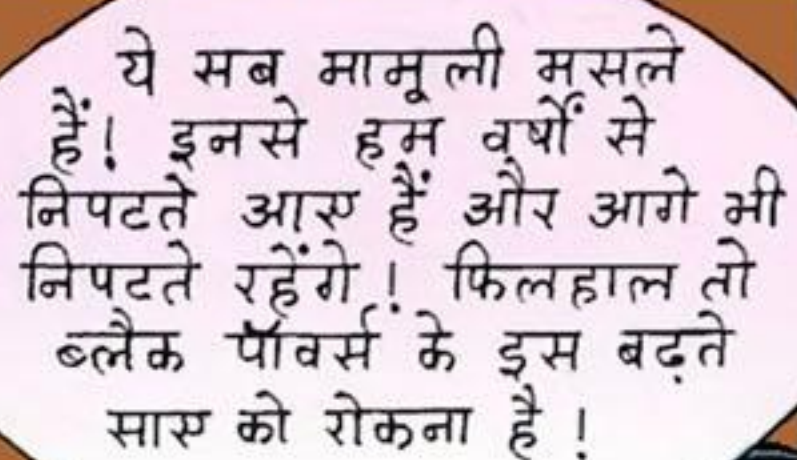 ये सब मामूली मसले
हैं! इनसे हम वर्षों से
निपटते आए हैं और आगे भी
निपटते रहेंगे! फिलहाल तो
ब्लैक पॉवर्स के इस बढ़ते
साए को रोकना है!